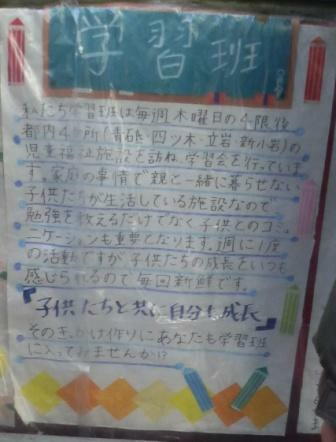 学習班
私たち学習班は毎週木曜日の4限後
都内4か所(青砥・四ツ木・立岩・新小岩)の
児童福祉施設を訪ね、学習会を行っていま
す。家庭の事情で親と一緒に暮らせない
子供たちが生活している施設なので
勉強を教えるだけでなく子供とのコミュ
ニケーションも重要となります。週に1度
の活動ですが子供たちの成長をいつも
感じられるので毎回新鮮です。
『子供たちと共に自分も成長』
そのきっかけ作りにあなたも学習班
に入ってみませんか!?